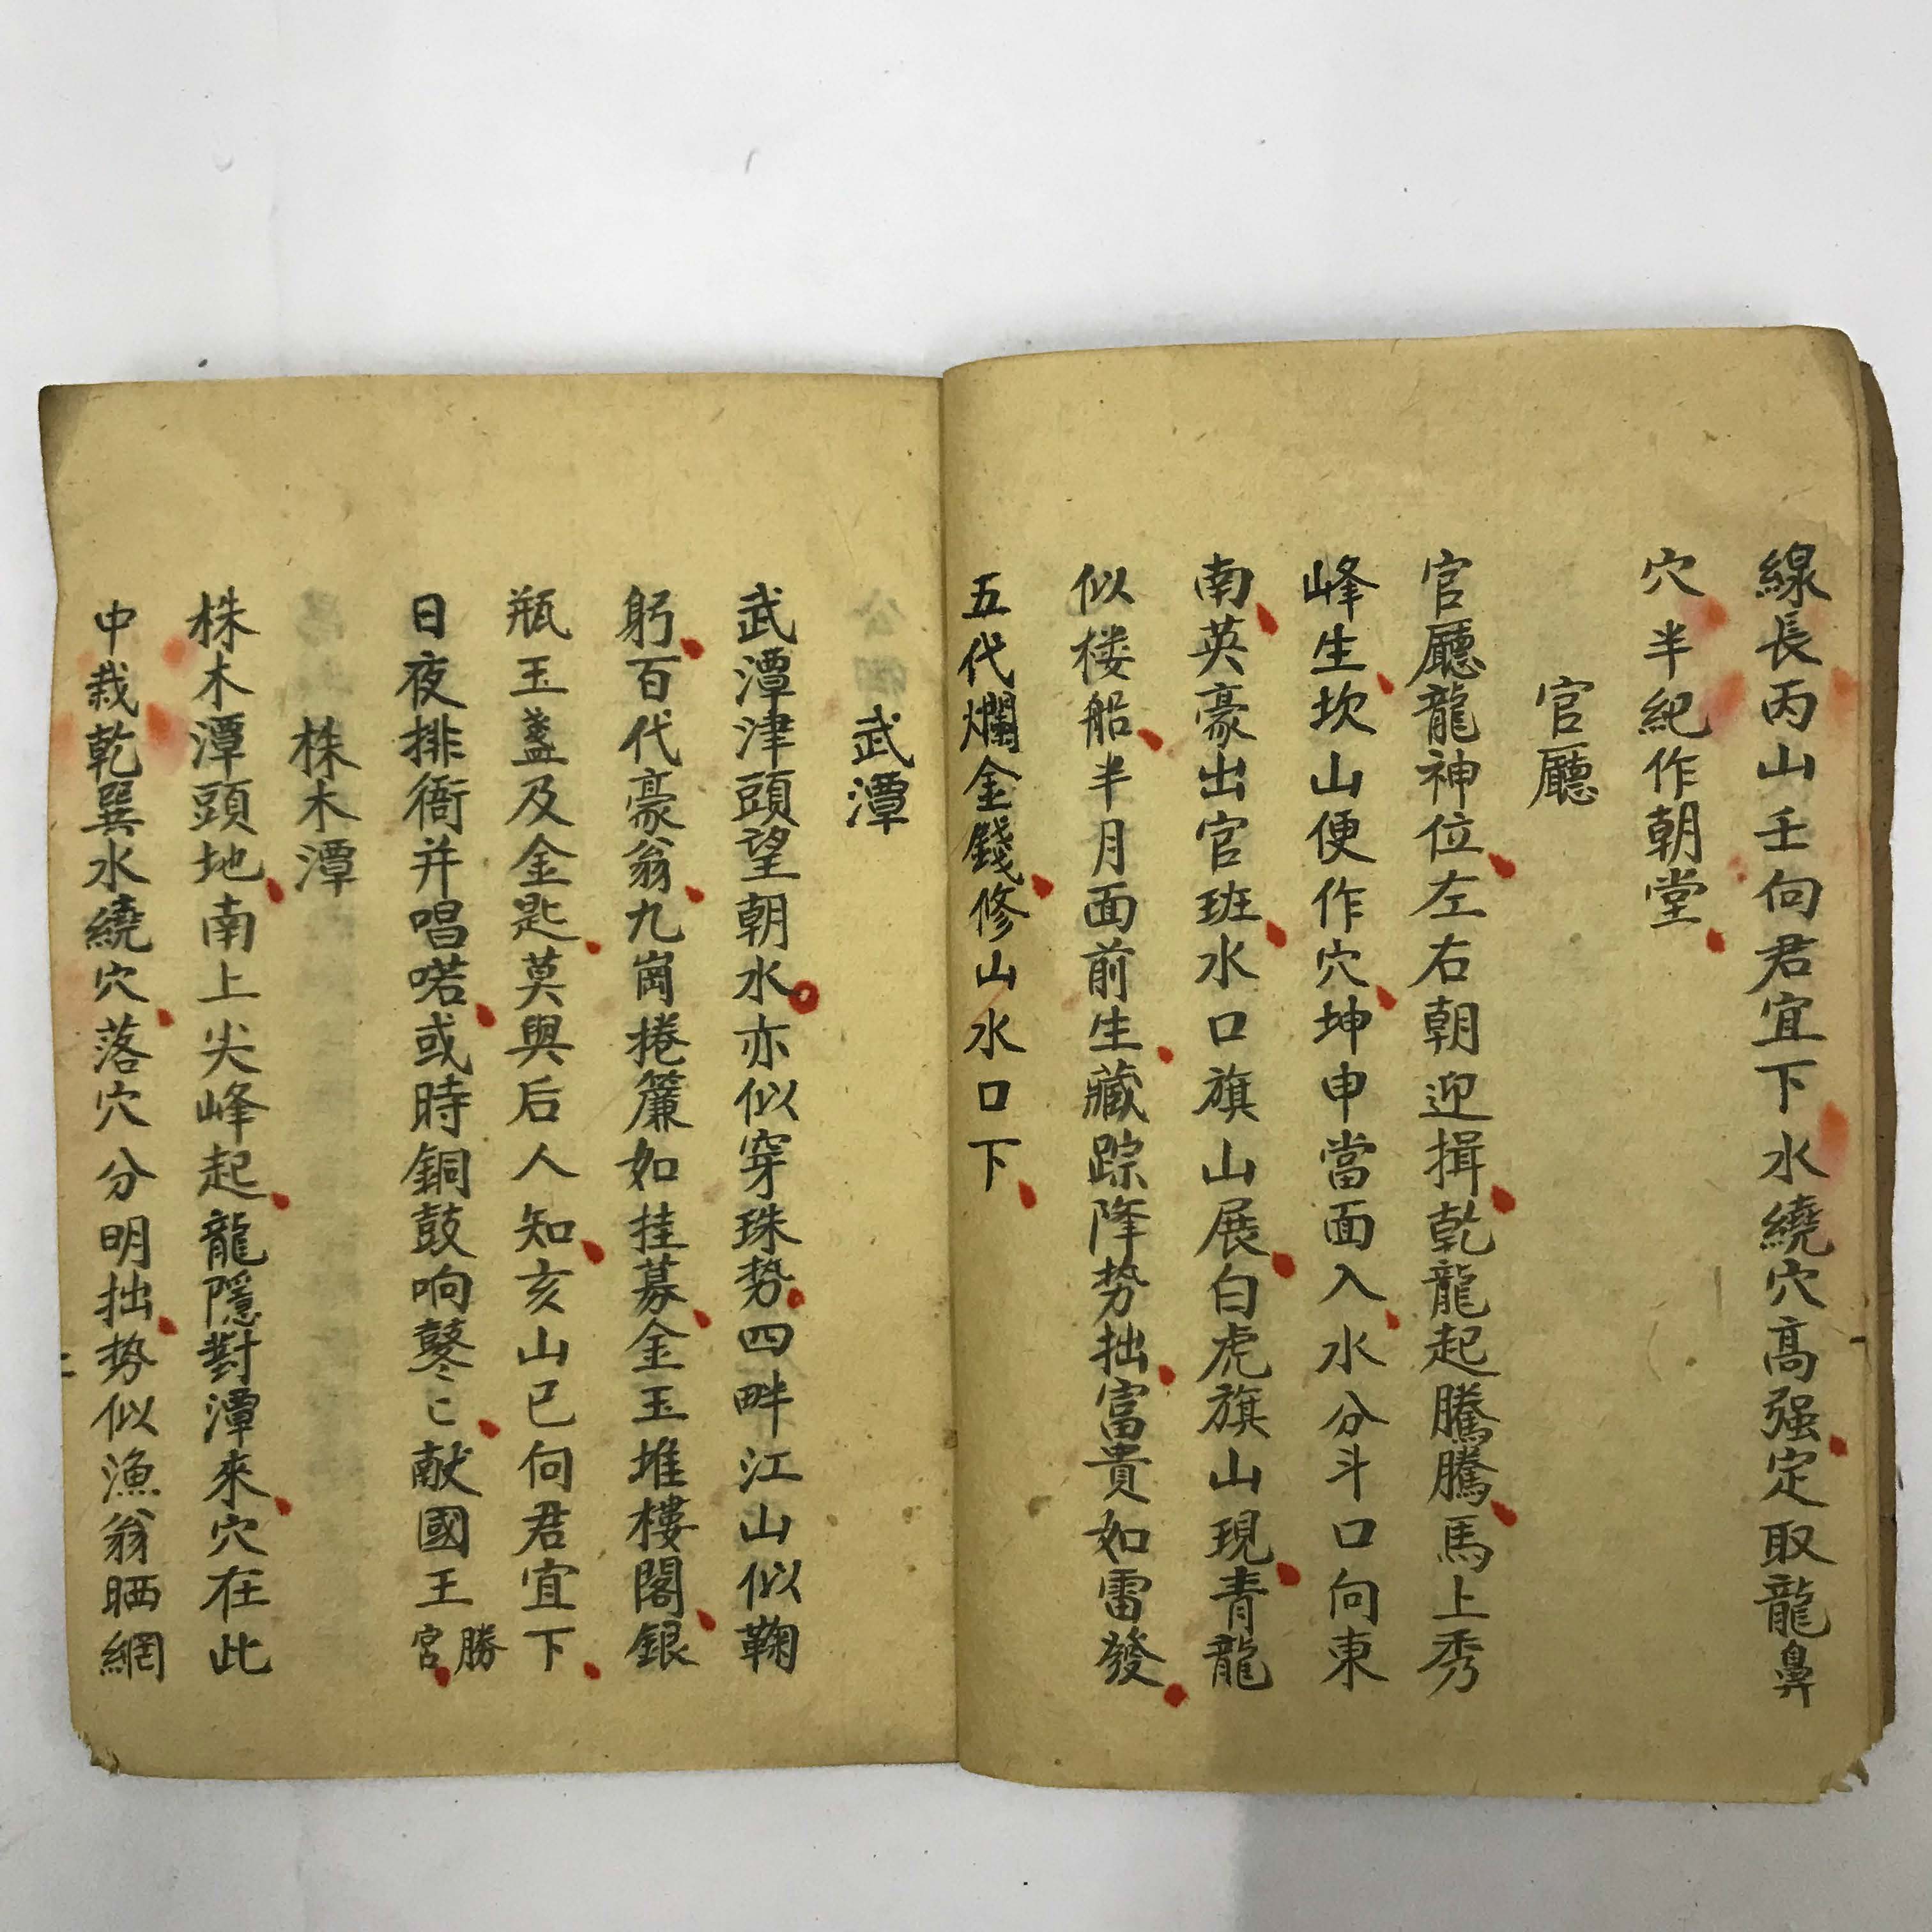 線長丙山壬向君宜下水繞穴高强定取龍鼻
穴半紀作朝堂
官廳
官廳龍神位左右朝迎揖乾龍起騰騰馬上秀
峰生坎山便作穴坤申當面入水分斗口向東
南英豪出官班水口旗山展白虎旗山現青龍
似楼船半月面前生藏踪降势拙富貴如雷發
五代爛金錢修山水口下
武潭
武潭津頭望朝水亦似穿珠势四畔江山似鞠
躬百代豪翁九崗捲簾如挂募金玉堆樓閣銀
瓶玉盞及金匙莫與后人知亥山巳向君宜下
日夜排衙并唱喏或時銅鼓响鼕〻献國王勝宮
株木潭
株木潭頭地南上尖峰起龍隱對潭來穴在此
中栽乾巽水繞穴落穴分明拙势似漁翁晒網